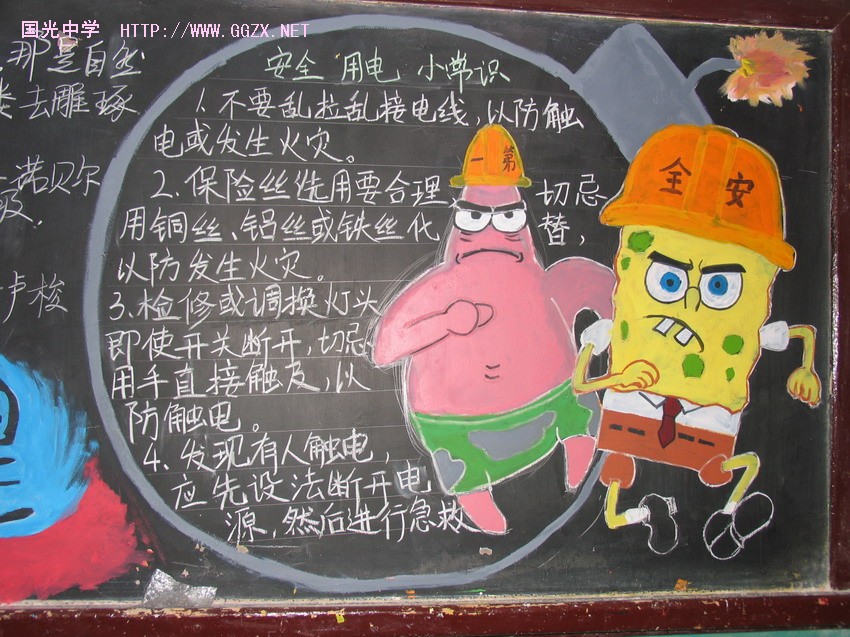 国光中学 HTTP://WWW.GGZX.NET
那是自然
去雕琢
诺贝尔
卢梭
安全用电小常识
1.不要乱拉乱接电线,以防触
电或发生火灾。
2.保险丝选用要合理,切忌
用铜丝、铝丝或铁丝代替,
以防发生火灾。
3.检修或调换灯头
即使开关断开,切忌
用手直接触及,以
防触电。
4.发现有人触电,
应先设法断开电
源,然后进行急救
一第
全安